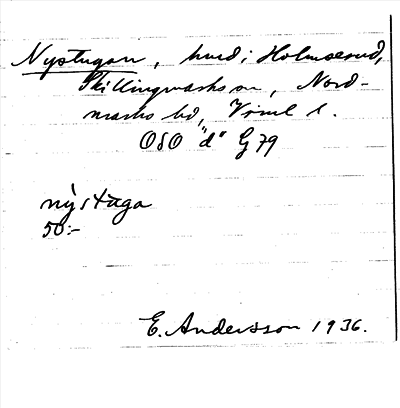 Nystugan, hmd i Holmserud,
Skillingmarks sn, Nord-
marks hd, Vrml l.
OSO "d" G 79
nỳstũga
50:-
E. Andersson 1936.